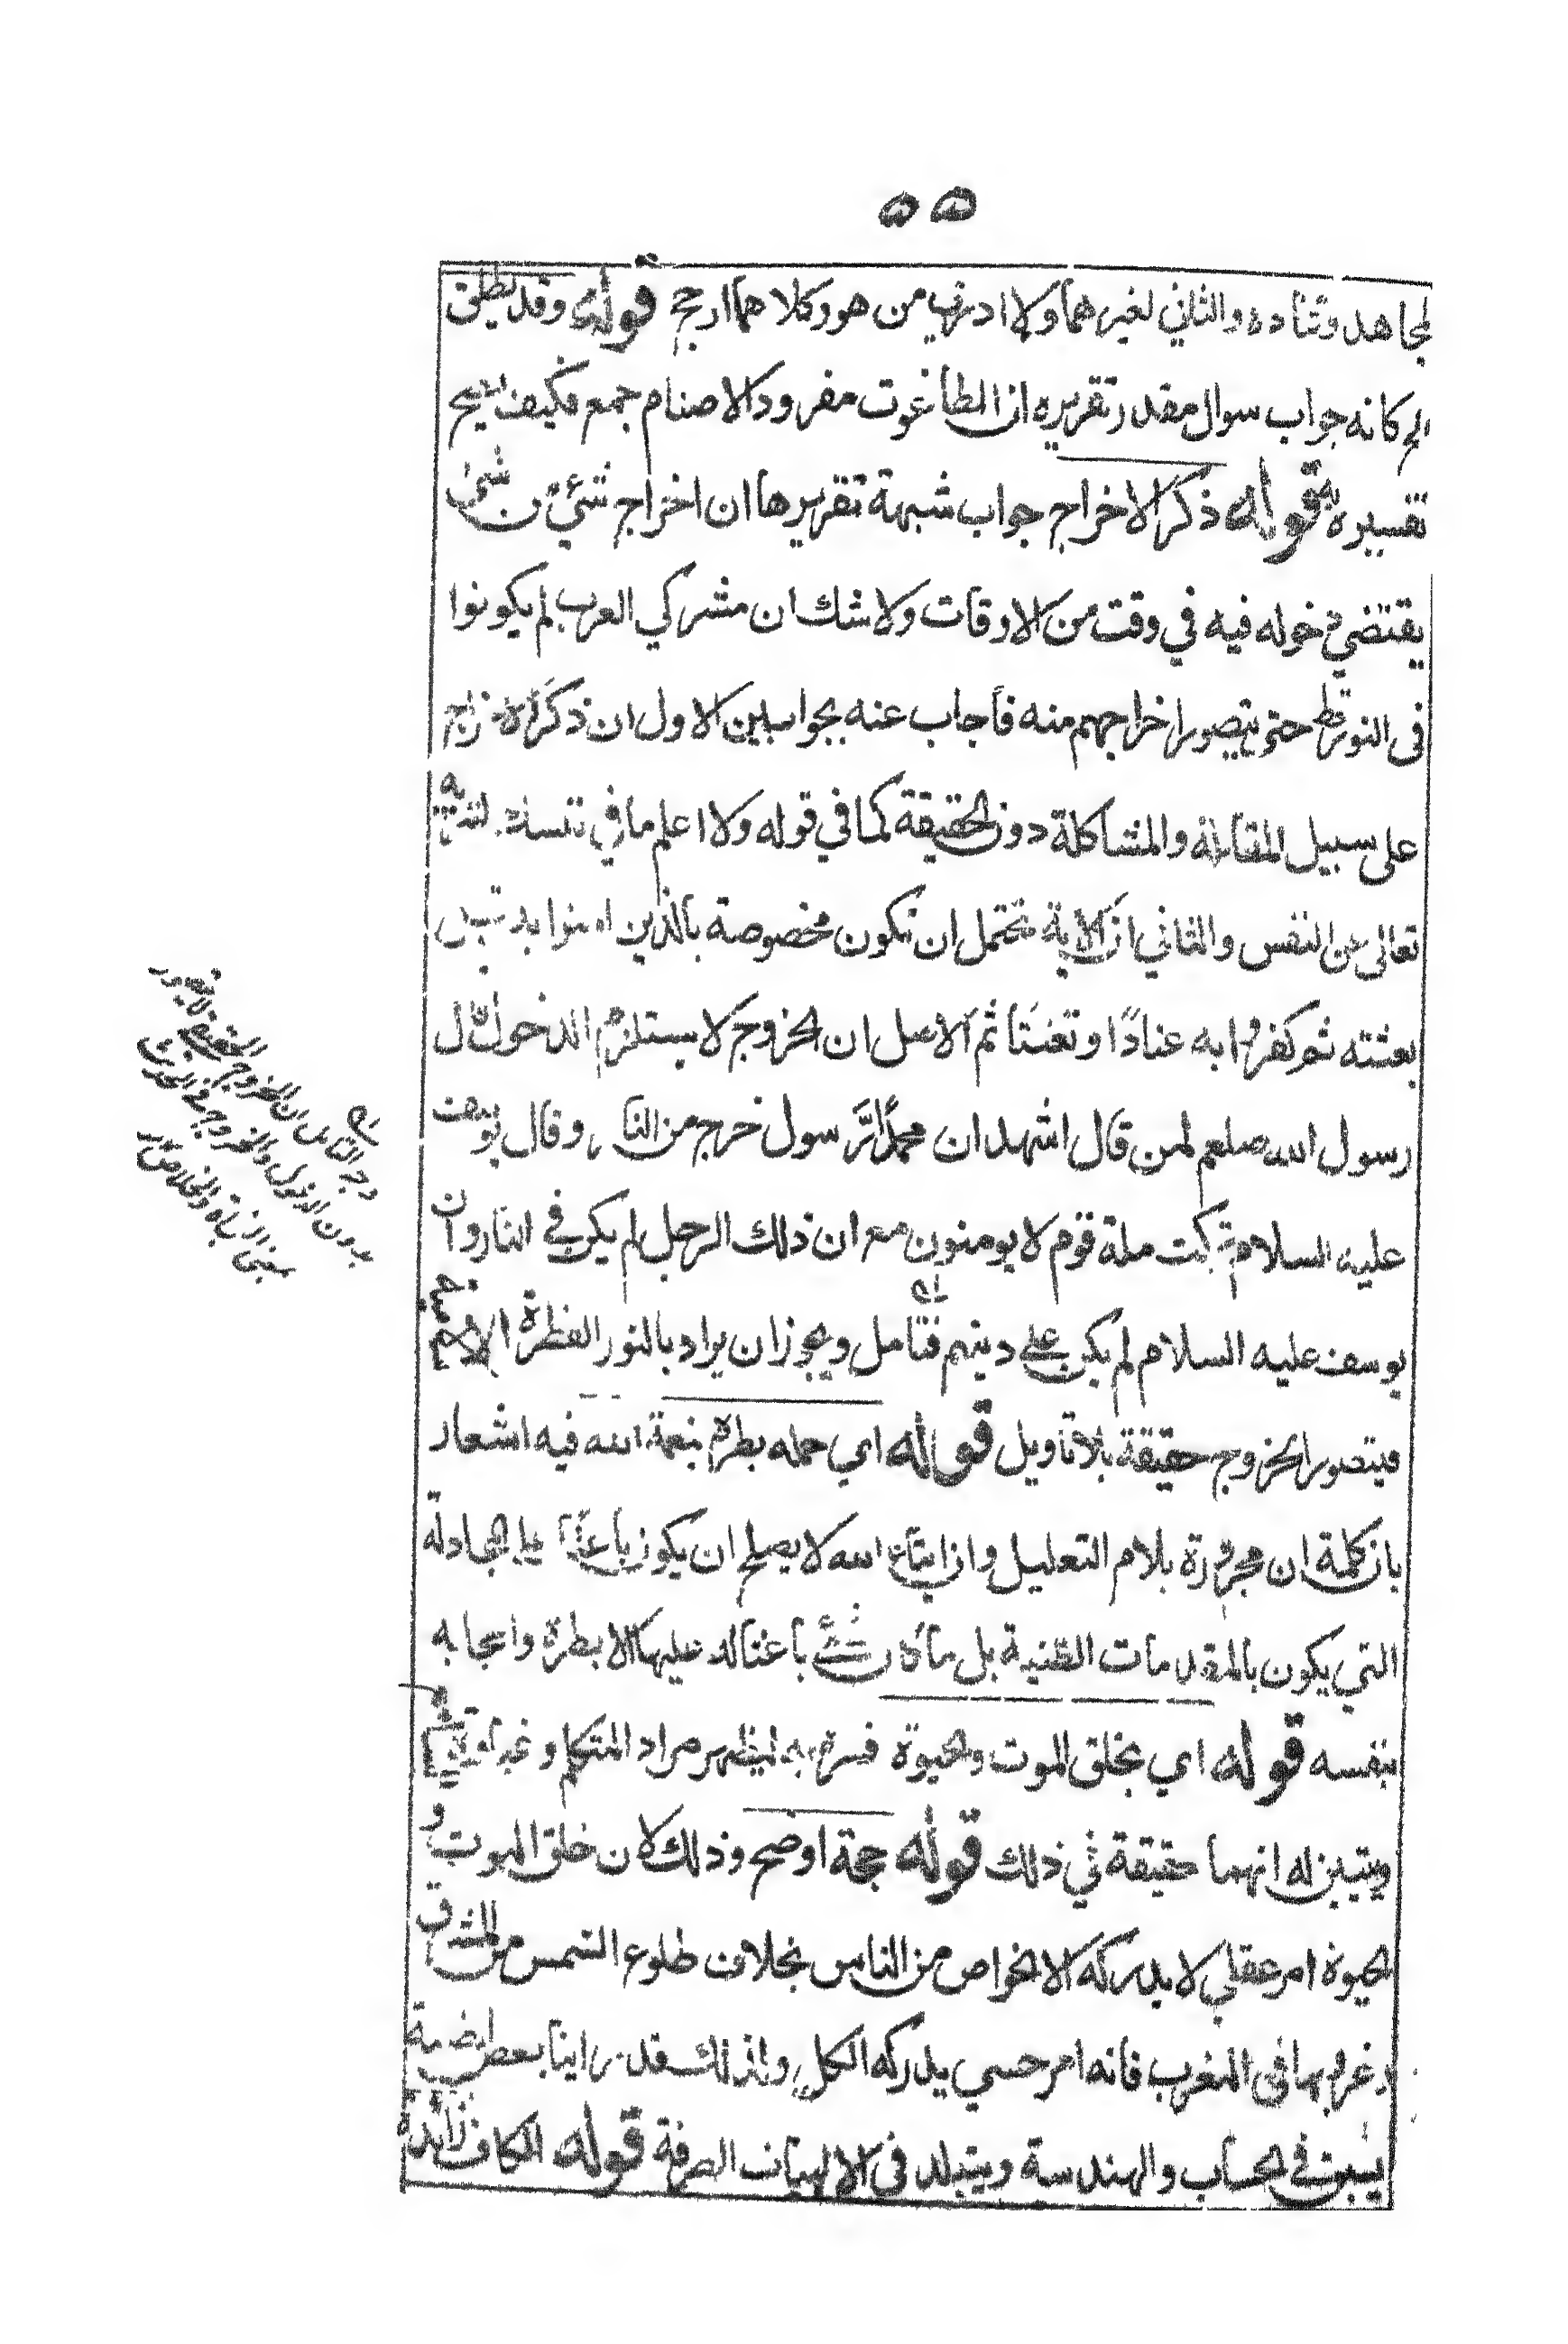 ٥٥
لمجاهد وقتاده والثاني لغيرهما ولا ادري من هو وكلاهما ارجح قوله وقد يطلق
الخ كانه جواب سوال مقدر تقريره ان الطاغوت مفرد والاصنام جمع فكيف يصح
تفسيره به قوله ذكر الاخراج جواب شبهة تقريرها ان اخراج شئ من شئ
يقتضي دخوله فيه في وقت من الاوقات ولا شك ان مشركي العرب لم يكونوا
في النور قط حتى يتصور اخراجهم منه فأجاب عنه بجوابين الاول ان ذكر الاخراج
على سبيل المقابلة والمشاكلة دون الحقيقة كما في قوله ولا اعلم ما في نفسك لتنزيهه
تعالى عن النفس والثاني ان الآية تحتمل ان تكون مخصوصة بالذين امنوا به قبل
بعثته ثم كفروا به عنادًا وتعنتا ثم الاصل ان الخروج لا يستلزم الدخول قال
رسول الله صلعم لمن قال اشهد ان محمدًا رسول خرج من النار وقال يوسف
عليه السلام تركت ملة قوم لا يومنون مع ان ذلك الرجل لم يكن في النار وان
يوسف عليه السلام لم يكن على دينهم فتأمل ويجوز ان يراد بالنور الفطرة الاصلية
فيتصور الخروج حقيقة بلا تأويل قوله اي حمله بطره بنعمة الله فيه اشعار
بان كلمة ان مجرورة بلام التعليل وان ايتاء الله لا يصلح ان يكون باعثا على المجادلة
التي يكون بالمقدمات الظنية بل ما كان شئ باعثا له عليها الا بطره واعجابه
بنفسه قوله اي بخلق الموت والحيوة فسره به ليظهر مراد المتكلم
ويتبين له انهما حقيقة في ذلك قوله حجة اوضح وذلك لان خلق الموت و
الحيوة امر عقلي لا يدركه الا الخواص من الناس بخلاف طلوع الشمس من المشرق
وغروبها في المغرب فانه امر حسي يدركه الكل ولذلك قد راينا بعض
في الحساب والهندسة ويتبلد في الالهيات الصرفة قوله الكاف زائدة
وجه التأمل ان الخروج الحقيقي لا يتصور
بدون الدخول والخروج في الحديث
بمعنى النجاة والخلاص